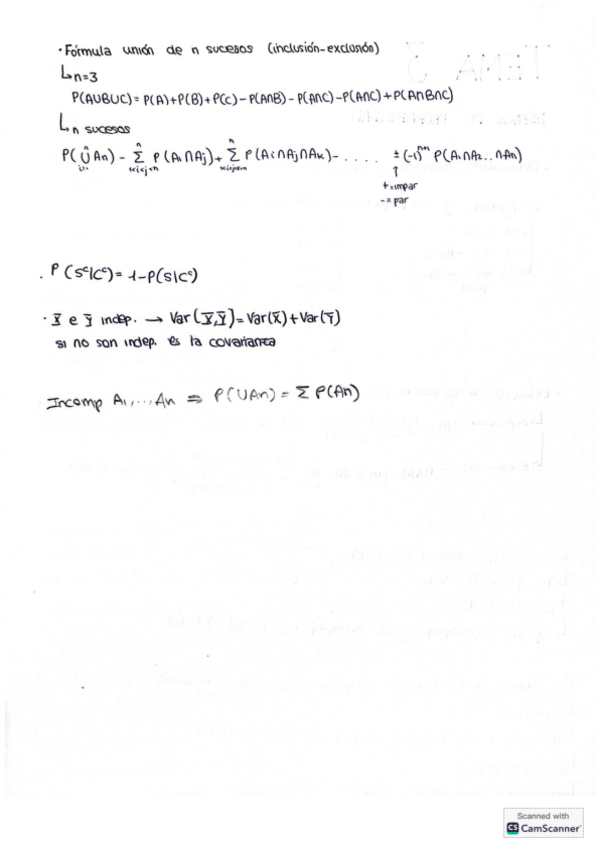 · Fórmula unión de n sucesos (inclusión-exclusión)
↳ n=3
P(AUBUC) = P(A)+P(B)+P(C)-P(A∩B)-P(A∩C)-P(A∩C)+P(A∩B∩C)
↳ n sucesos
P(⋃ⁿᵢ₌₁ An) - Σⁿ₁≤i<j≤n P(Ai∩Aj) + Σⁿ P(Ai∩Aj∩Ak) - .... ± (-1)ⁿ⁺¹ P(A₁∩A₂..∩An)
+ = impar
- = par
. P(Sᶜ|Cᶜ) = 1-P(S|Cᶜ)
· X̄ e ȳ indep. → Var(X̄,Ȳ) = Var(X̄)+Var(Ȳ)
si no son indep. es la covarianza
· Incomp A₁,...,An ⇒ P(UAn) = Σ P(An)
Scanned with
CS CamScanner